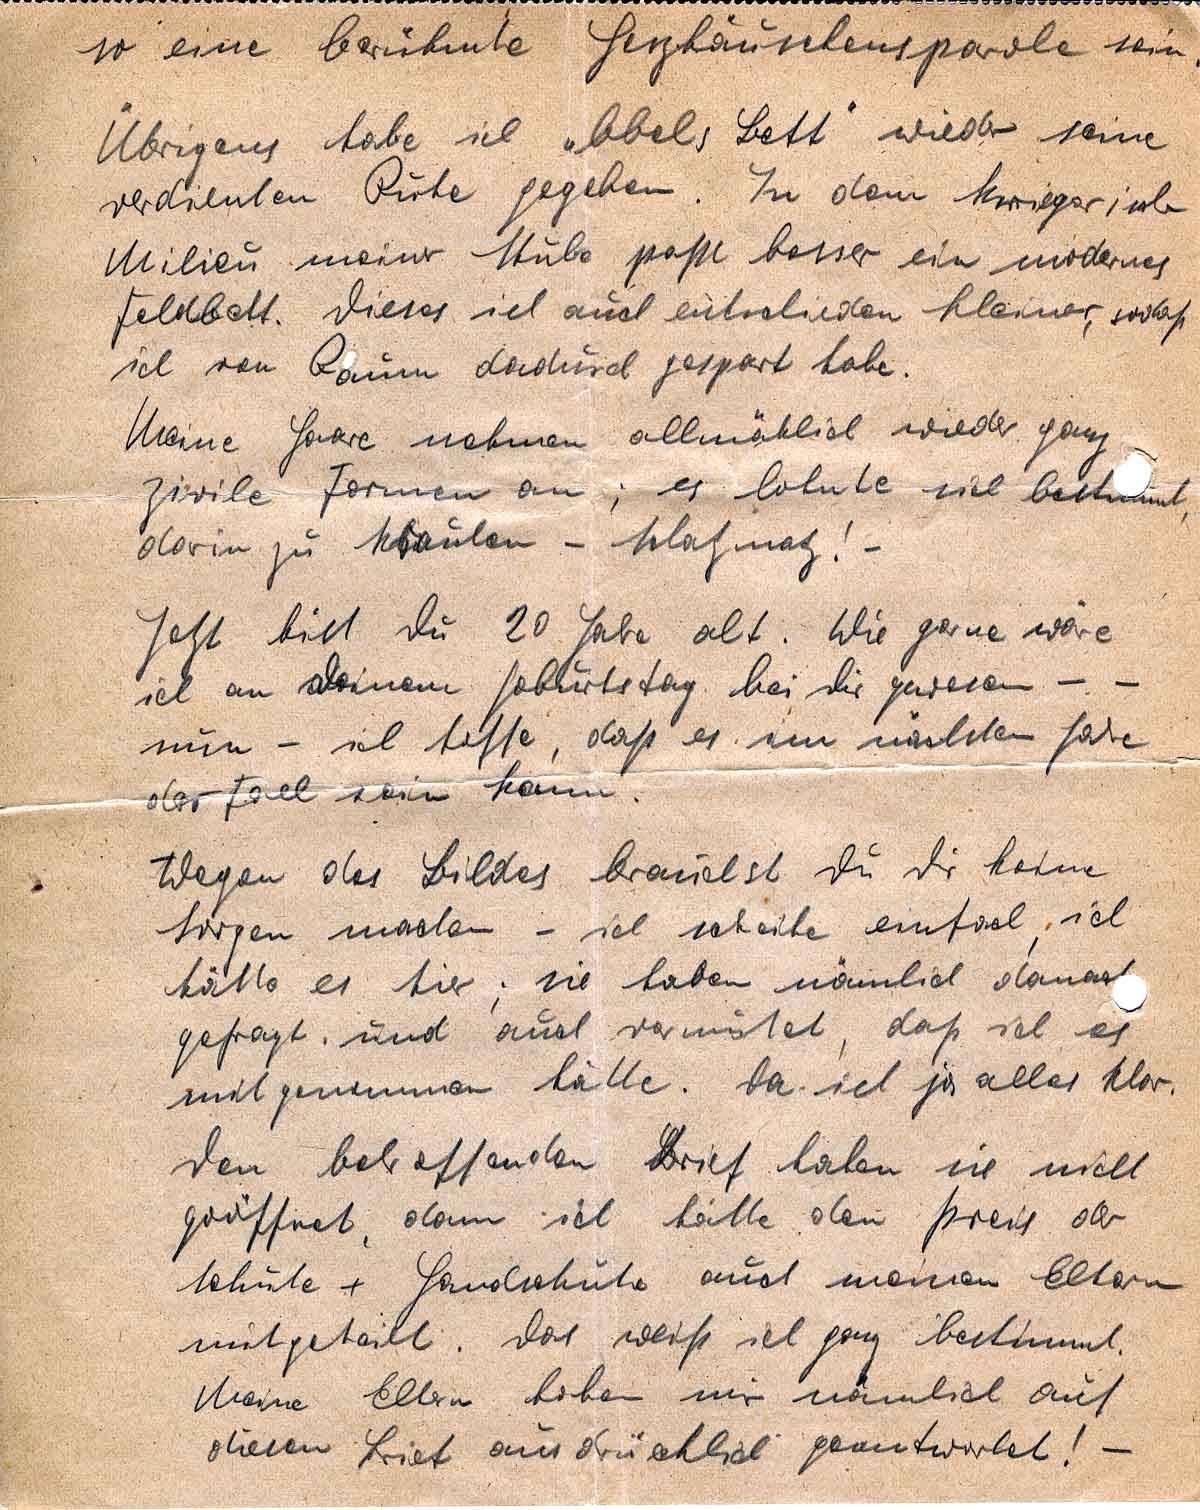 so eine berühmte Herzhäuschensparole sein.
Übrigens habe ich „Abels Bett“ wieder seine
verdienten Ruhe gegeben. In dem kriegerische
Milieu meiner Stube paßt besser ein modernes
Feldbett. Dieses ist auch entschieden kleiner, sodaß
ich von Raum dadurch gespart habe.
Meine Haare nehmen allmählich wieder ganz
zivile Formen an; es lohnte sich bestimmt,
darin zu kraulen –             ! –
Jetzt bist Du 20 Jahre alt. Wie gerne wäre
ich an Deinem Geburtstag bei Dir gewesen – –
nun – ich hoffe, daß es im nächsten Jahre
der Fall sein kann.
Wegen des Bildes brauchst Du Dir keine
Sorgen machen – ich schreibe einfach, ich
hätte es hier; sie haben nämlich danach
gefragt und auch vermutet, daß ich es
mitgenommen hätte. Da ist ja alles klar.
Den betreffenden Brief haben sie nicht
geöffnet, denn ich hatte den Preis der
Schuhe + Handschuhe auch meinen Eltern
mitgeteilt. Das weiß ich ganz bestimmt.
Meine Eltern haben mir nämlich auf
diesen Brief ausdrücklich geantwortet! –